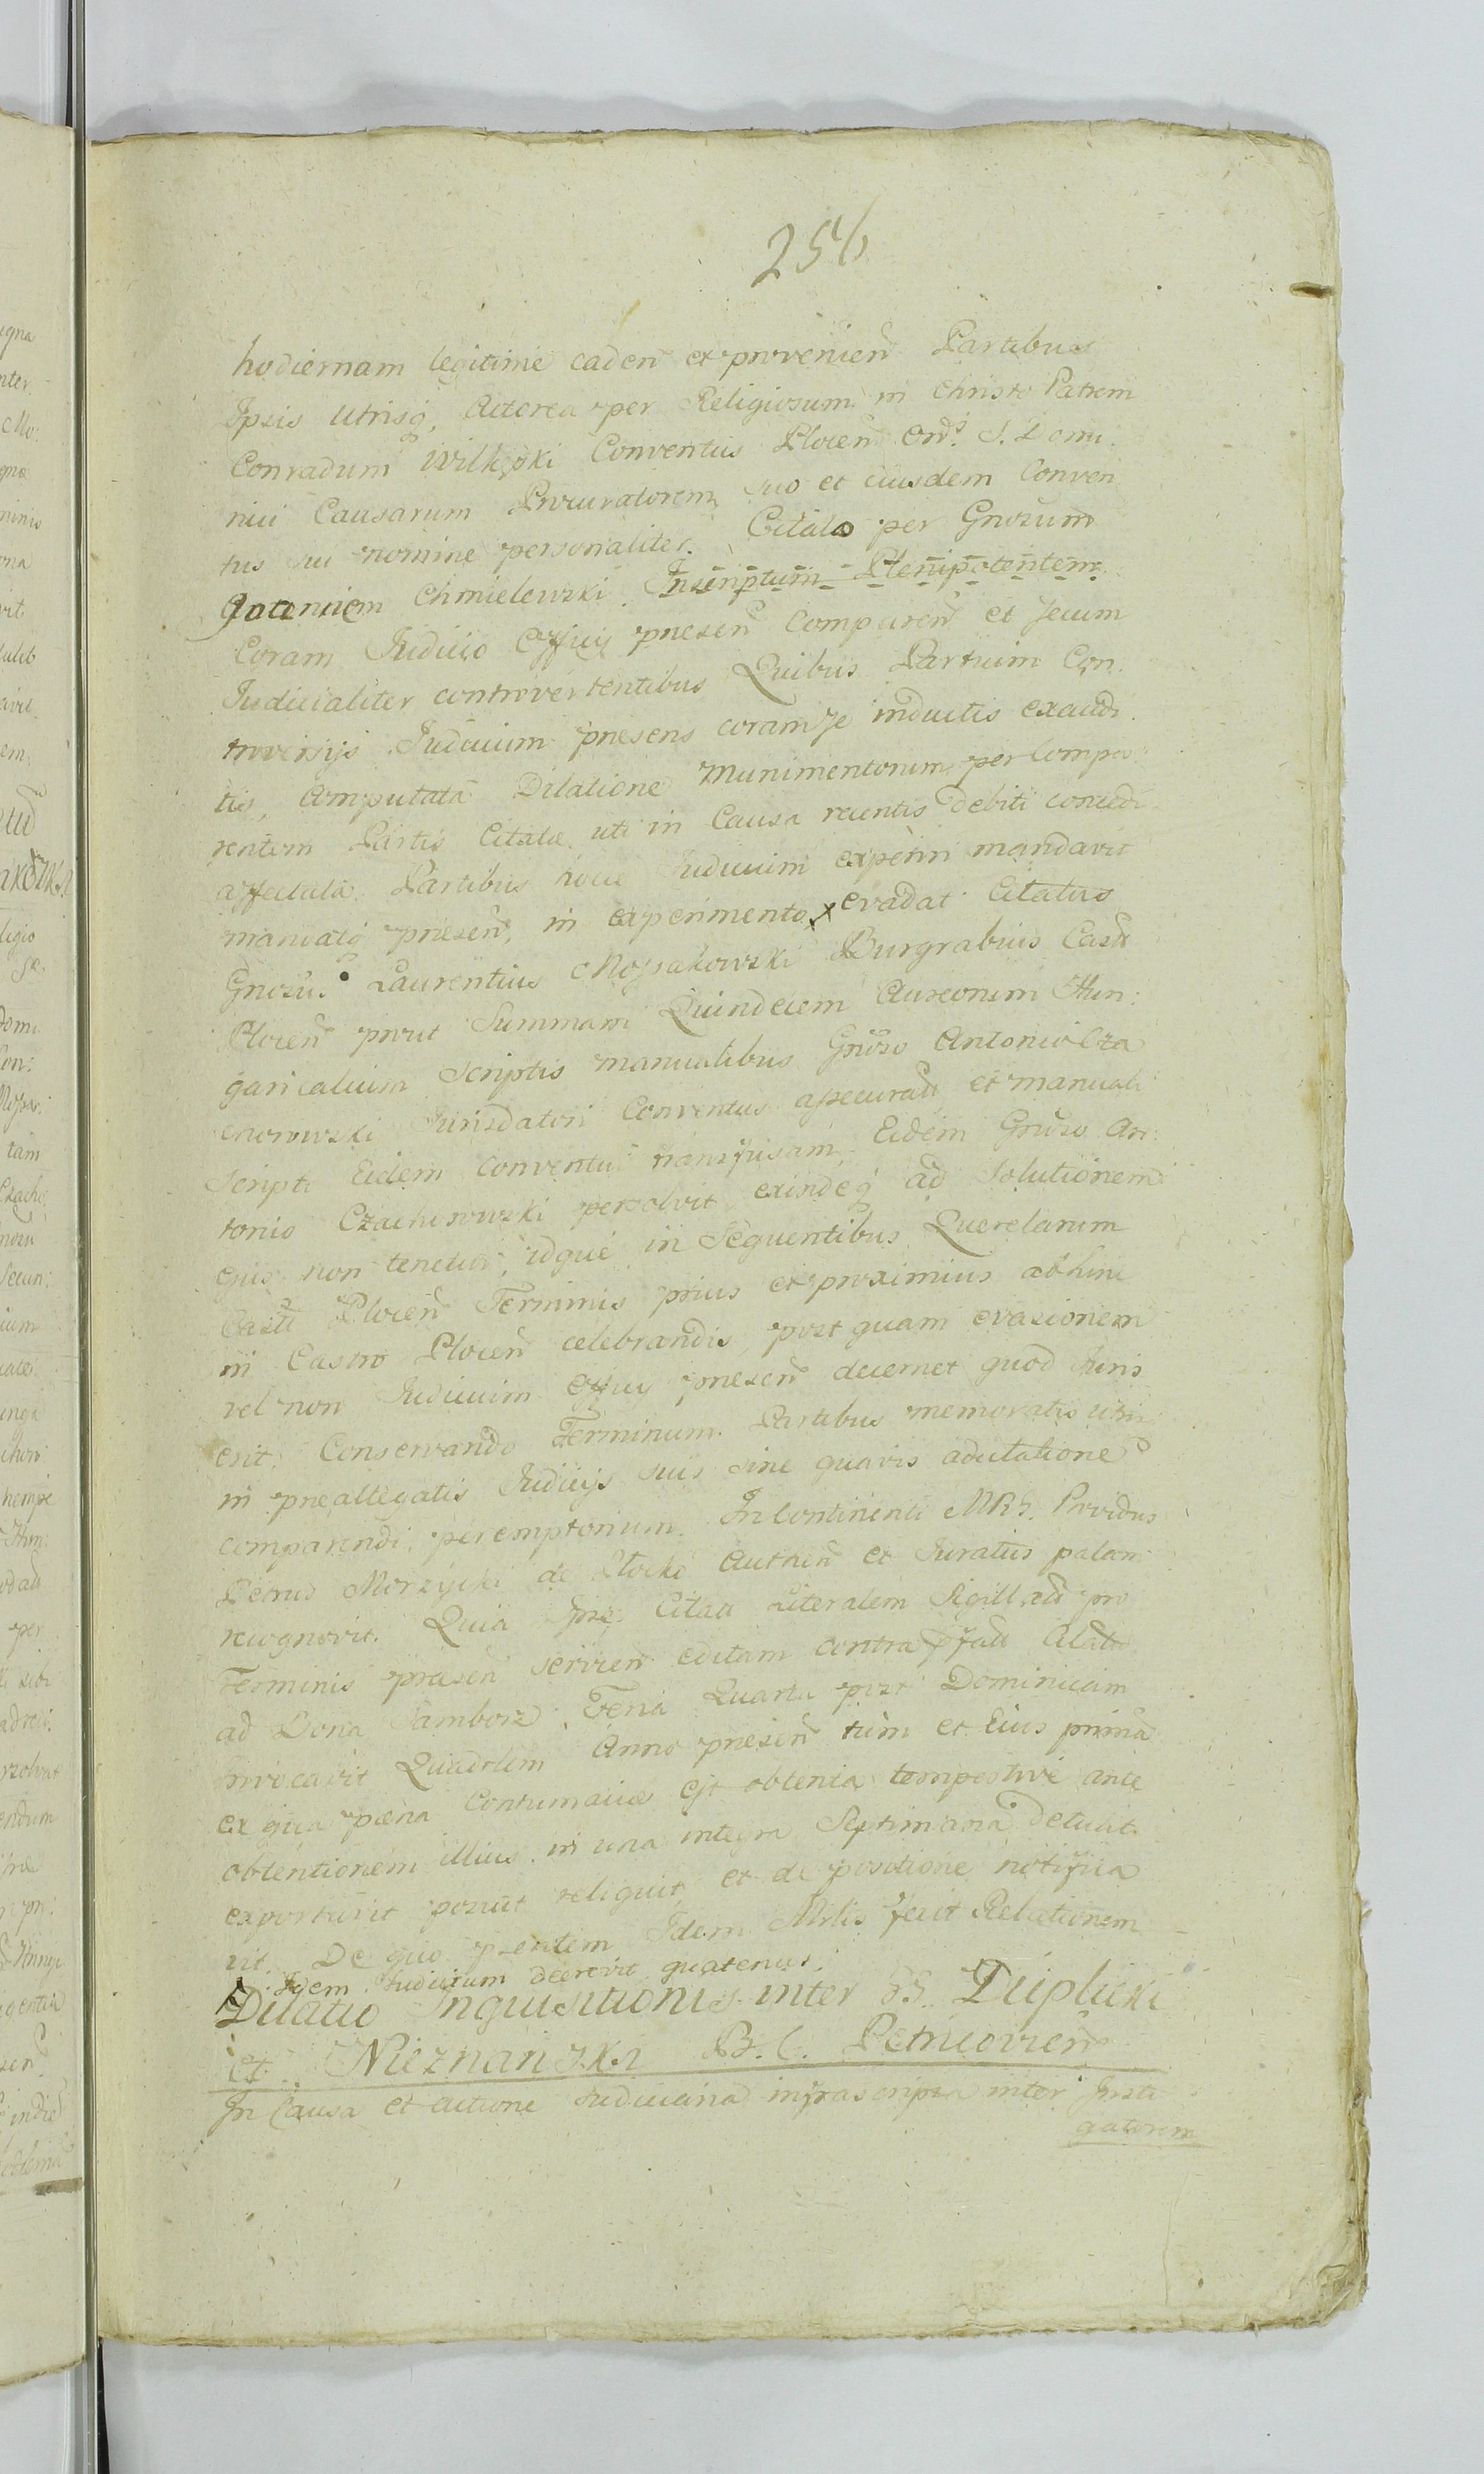 256
hodiernam legitime caden̄ et provenien̄ Partibus
Ipsis Utrisq́, Actorea per Religiosum in Christo Patrem
Conradum Wilkoski Conventus Plocen̄ Ord: S. Domi:
nici Causarum Procuratorem suo et eiusdem Conven
tus sui nomine personaliter. Citata per Gnosum
Antonium Chmielewski. Inscriptum Plenipotentem
Coram Iudicio Offuy presen̄ Comparen̄ et secum
Iudicialiter controvertentibus Quibus Partium Con
troversijs Iudicium presens coram se inductis exaudi
tis, Computata Dilatione Munimentorum per Compa
rentem Partis Citatæ uti in Causa recentis debiti concedi
affectata Partibus hocce Iudicium experiri mandavit
mandatq́ presen̄, in experimento x evadat Citatus
Gnosus Laurentius Mossakowski Burgrabius Castr̄
Plocen̄ prout Summam Quindecem Aureorum Hun:
garicalium Scriptis manualibus Gnoso Antonio Cza
chorowski Conventus assecurat̄ et manuali
Scripto Eidem Conventui transfusam, Eidem Gnoso An:
tonio Czachorowski persolvit exindeq́ ad Solutionem
ejus non tenetur, idque in Sequentibus Querelarum
Castr̄ Plocen̄ Terminis prius et proximius abhinc
in Castro Plocen̄ celebrandis, post quam evasionem
vel non Iudicium Offuy presen̄ decernet quod Iuris
erit. Conservando Terminum Partibus memoratis utri
in preallegatis Iudicijs suis sine quavis aducitatione
comparendi peremptorium. In Continenti MRS. Providus
Petrus Morzycki de Plocko Authen̄ et Iuratus palam
recognovit. Quia Ipse Citat̄ Literalem Sigillat̄ pro
Terminis presen̄ servien̄ editam contra
ad Bona Samborz, Feria Quarta post Dominicam
Invocavit Quadrlem Anno presen̄ tum et Eius prima
ex qua pæna Contumaciæ est obtenta tempestive ante
obtentionem illius in una integra Septimana detulit
exportavit posuit reliquit, et de positione notifica
vit. De quo Idem Mrlis fecit Relationem
Idem Iudicium decrevit quatenus.
Dilatio Inquisitionis inter GG. Duplicki
et Nieznanski B. C. Petricovien̄
In Causa et actione Iudiciaria infrascripta inter Insti
gatorem